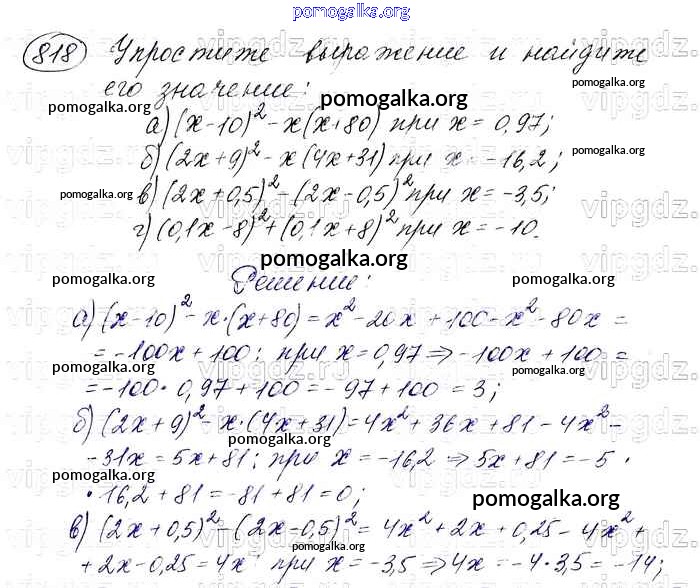 pomogalka.org
818 Упростите выражение и найдите
его значение:
pomogalka.org
pomogalka.org
а) (x-10)² - x(x+80) при x = 0,97;
б) (2x+9)² - x(4x+31) при x = -16,2;
pomogalka.org
pomogalka.org
в) (2x+0,5)² - (2x-0,5)² при x = -3,5;
pomogalka.org
г) (0,1x-8)² + (0,1x+8)² при x = -10.
pomogalka.org
Решение:
pomogalka.org
pomogalka.org
а) (x-10)² - x·(x+80) = x² - 20x + 100 - x² - 80x =
= -100x + 100; при x = 0,97 ⇒ -100x + 100 =
pomogalka.org
= -100 · 0,97 + 100 = -97 + 100 = 3;
б) (2x+9)² - x·(4x+31) = 4x² + 36x + 81 - 4x² -
pomogalka.org
- 31x = 5x + 81; при x = -16,2 ⇒ 5x + 81 = -5 ·
pomogalka.org
· 16,2 + 81 = -81 + 81 = 0;
pomogalka.org
в) (2x+0,5)² - (2x-0,5)² = 4x² + 2x + 0,25 - 4x² +
pomogalka.org
+ 2x - 0,25 = 4x при x = -3,5 ⇒ 4x = -4·3,5 = -14;
vipgdz.ru